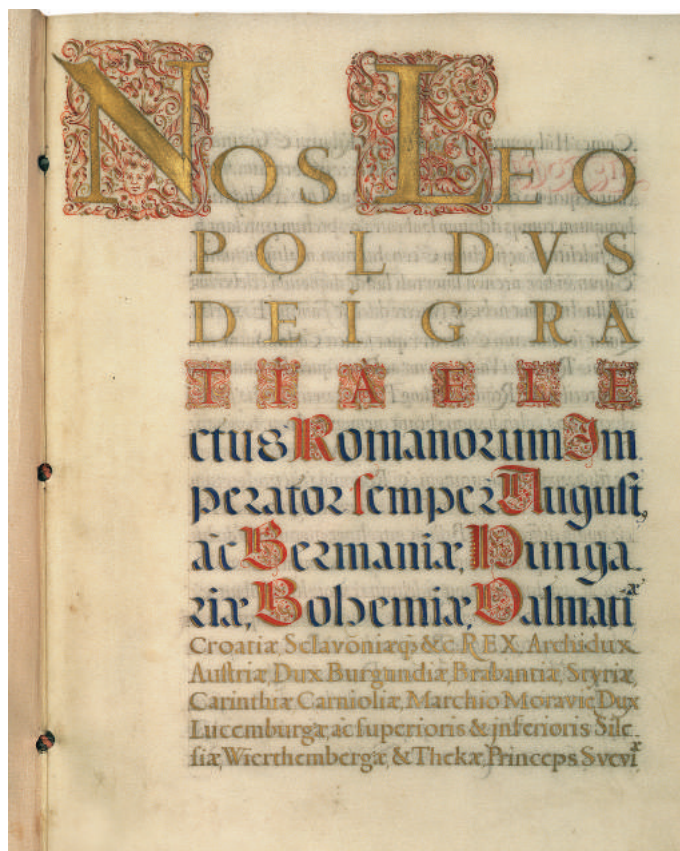 NOS LEO
POLDVS
DEI GRA
TIA ELE
ctus Romanorum Im
perator semper August,
ac Germaniæ, Hunga
riæ, Bohemiæ, Dalmatiæ
Croatiæ, Sclavōniæq; &c. REX, Archidux
Austriæ, Dux Burgundiæ, Brabantiæ, Styriæ,
Carinthiæ, Carnioliæ, Marchio Moraviæ, Dux
Lucemburgæ, ac superioris & jnferioris Sile
siæ, Wierthembergæ, & Thekæ, Princeps Sveviæ